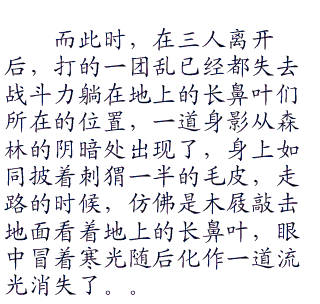 而此时，在三人离开
后，打的一团乱已经都失去
战斗力躺在地上的长鼻叶们
所在的位置，一道身影从森
林的阴暗处出现了，身上如
同披着刺猬一半的毛皮，走
路的时候，仿佛是木屐敲击
地面看着地上的长鼻叶，眼
中冒着寒光随后化作一道流
光消失了。。